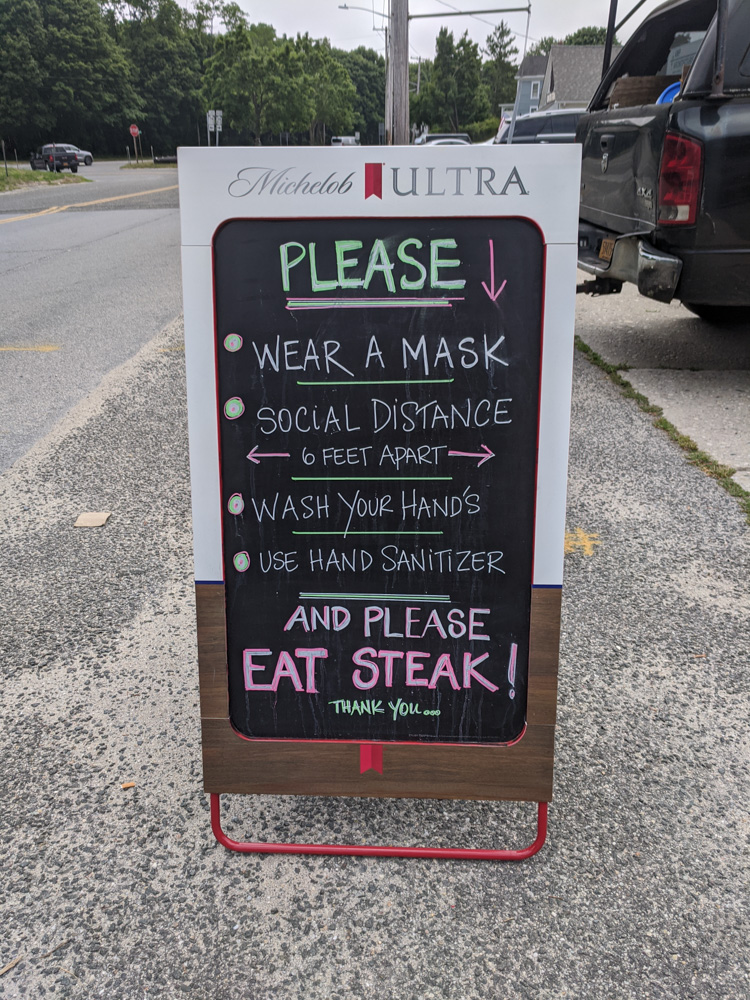 Michelob ULTRA
PLEASE
WEAR A MASK
SOCIAL DISTANCE
6 FEET APART
WASH YOUR HAND'S
USE HAND SANITIZER
AND PLEASE
EAT STEAK!
THANK YOU...